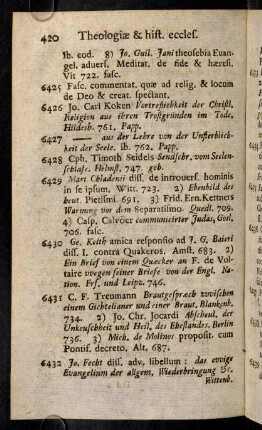 420 Theologiæ & hist. eccles.
Ib. eod. 8) Jo. Guil. Jani theosebia Euan-
gel. aduers. Meditat. de fide & hæresi.
Vit 722. fasc.
6425 Fasc. commentat. quæ ad relig. & locum
de Deo & creat. spectant.
6426 Jo. Carl Koken Vortreflichkeit der Christl.
Religion aus ihren Trostgründen im Tode,
Hildesh. 761. Papp.
6427 —— aus der Lehre von der Unsterblich-
keit der Seele. ib. 762. Papp.
6428 Cph. Timoth Seidels Sendschr. vom Seelen-
schlafe. Helmst. 747. geb.
6429 Mart Chladenii diss. de introuers. hominis
in se ipsum. Witt. 723. 2) Ebenbild des
heut. Pietismi 691. 3) Frid. Ern. Kettners
Warnung vor dem Separatismo. Quedl. 709.
4) Casp. Calvöer communicirter Judas, Gosl.
706. fasc.
6430 Ge. Keith amica responsio ad J. G. Baieri
diss. I. contra Quakeros. Amst. 683. 2)
Ein Brief von einem Quecker an F. de Vol-
taire wegen seiner Briefe von der Engl. Na-
tion. Frf. und Leipz. 746.
6431 C. F. Treumann Brautgespræch zwischen
einem Gichtelianer und einer Braut, Blankenb.
734. 2) Jo. Chr. Jocardi Abscheul. der
Unkeuschheit und Heil. des Ehestandes. Berlin
736. 3) Mich. de Molines proposit. cum
Pontif. decreto. Alt. 687.
6432 Jo. Fecht diss. adv. libellum: das ewige
Evangelium der allgem. Wiederbringung &c.
Wittenb.